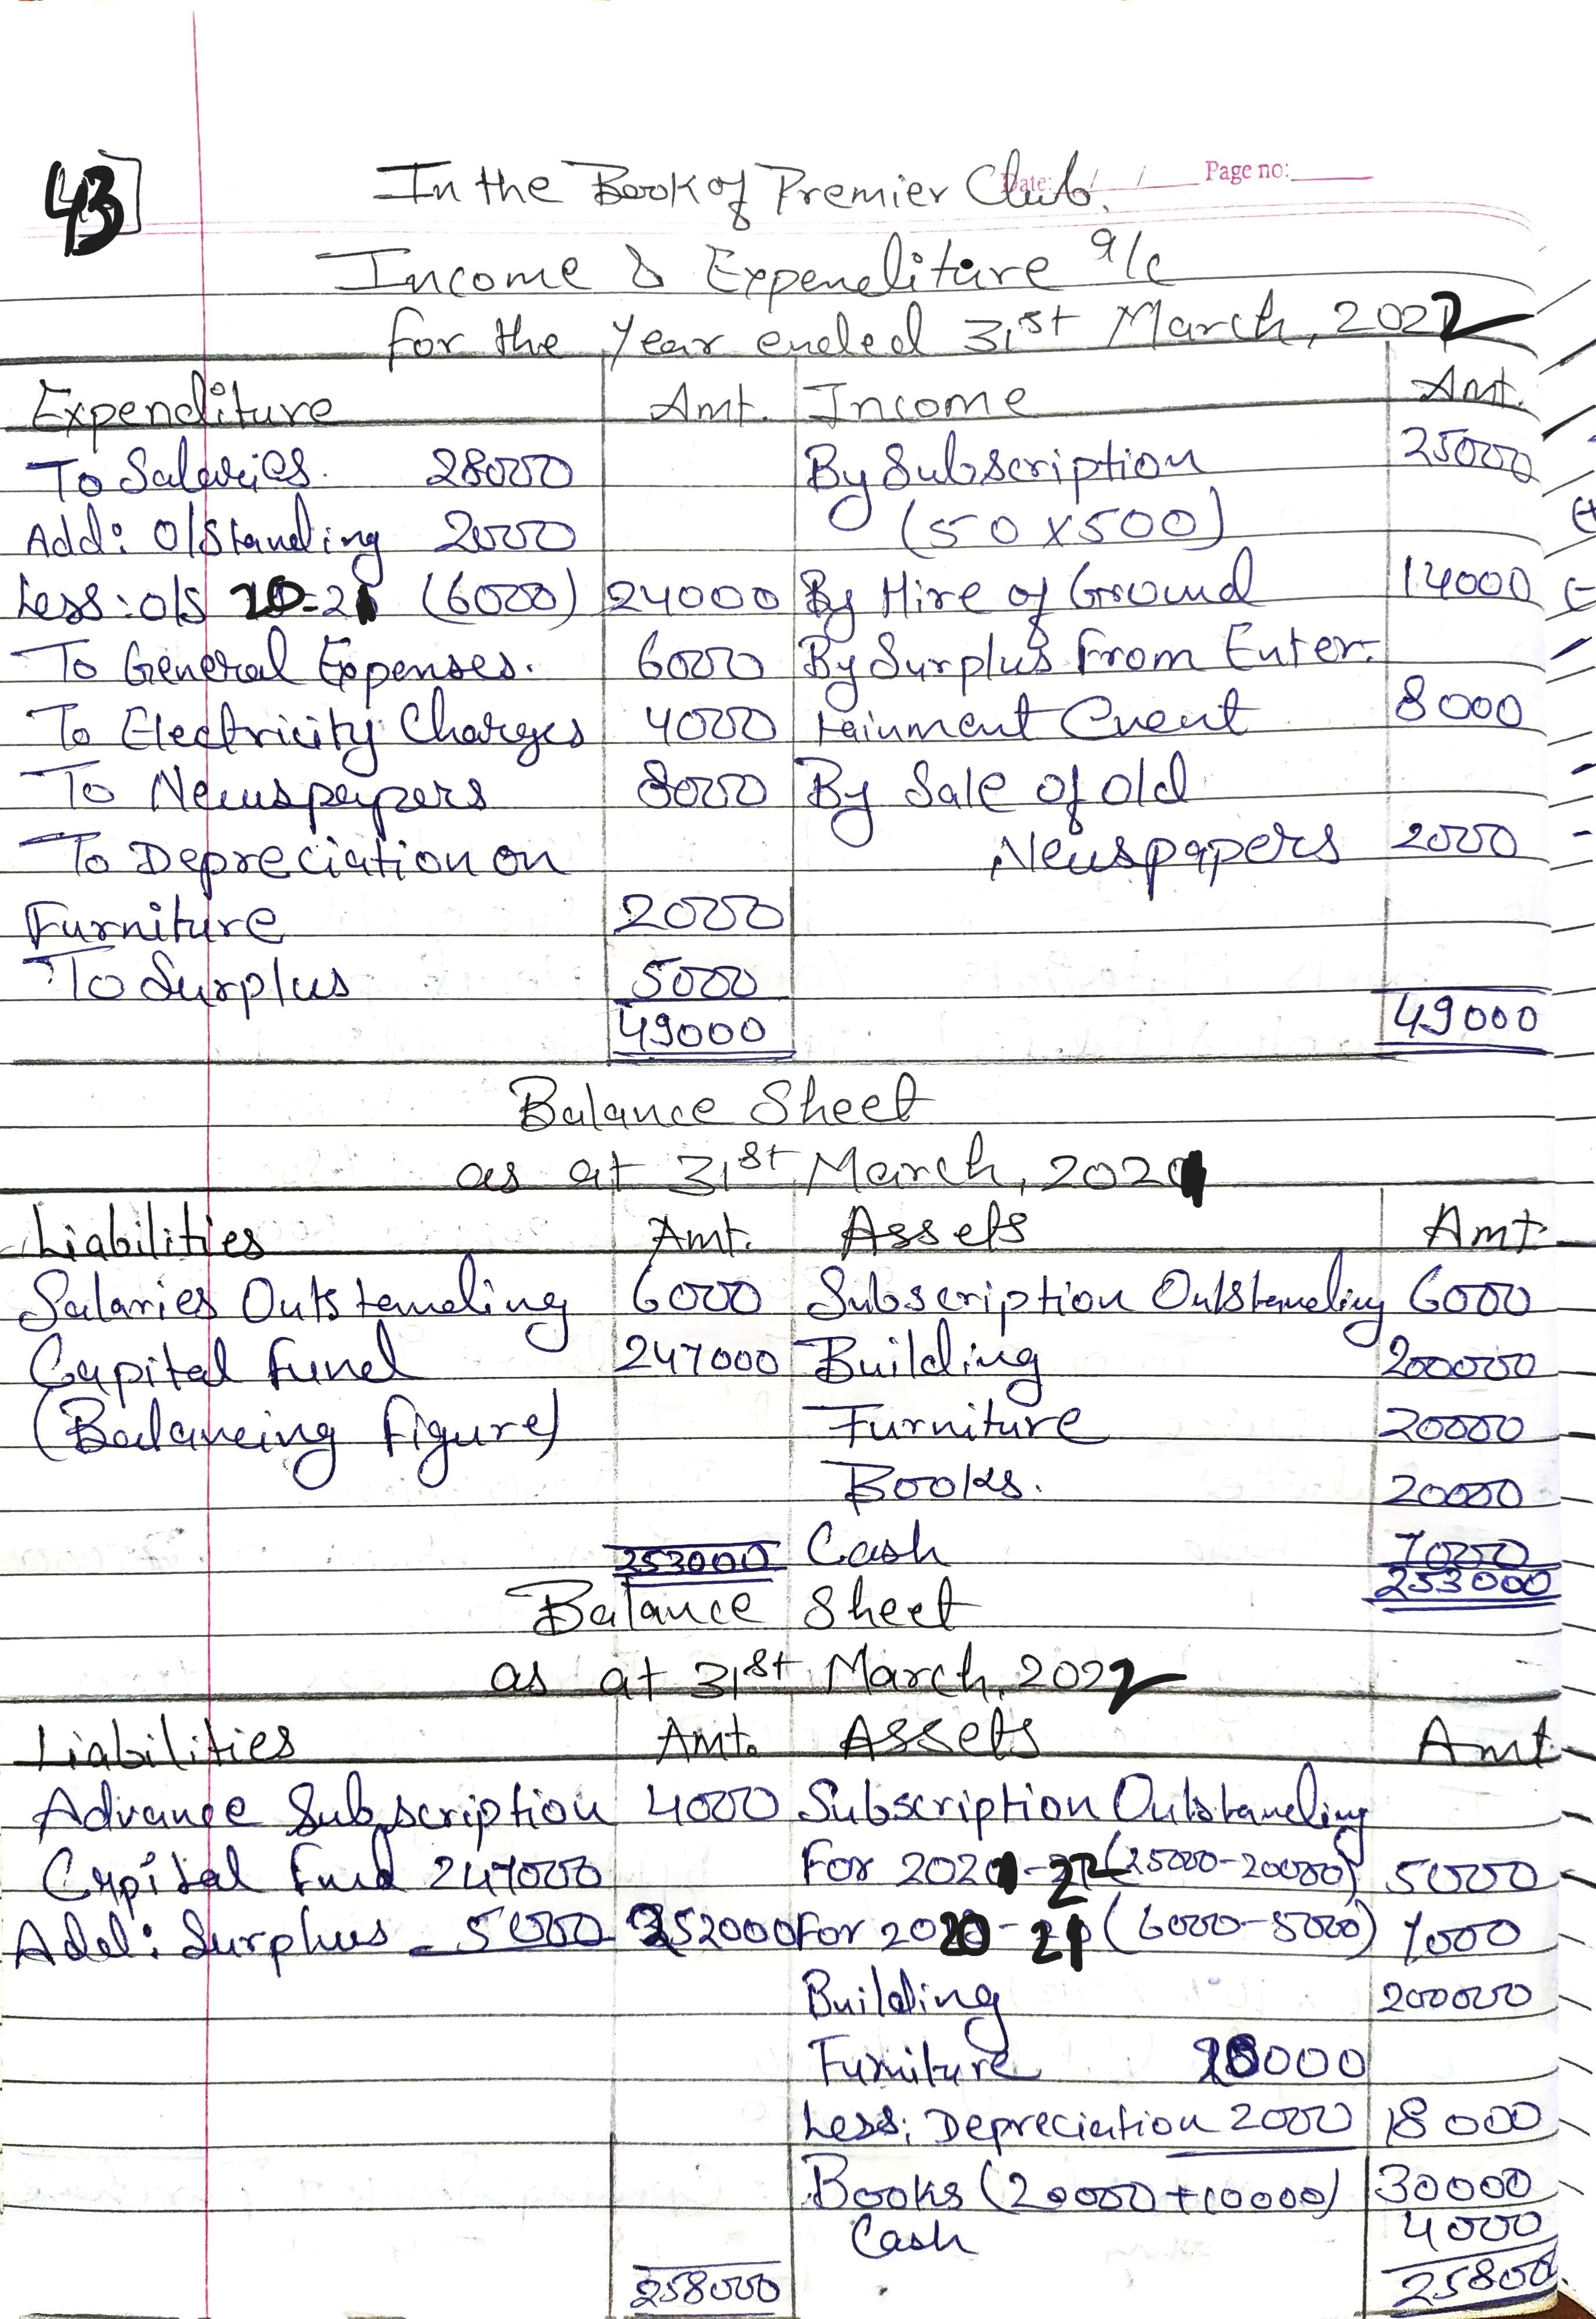 43
Date: / / Page no:
In the Book of Premier Club.
Income & Expenditure a/c
for the Year ended 31st March, 2022
Expenditure Amt. Income Amt.
To Salaries. 28000 By Subscription 25000
Add: O/Standing 2000 (50 x 500)
Less: O/S 20-21 (6000) 24000 By Hire of Ground 14000
To General Expenses. 6000 By Surplus From Enter-
To Electricity Charges 4000 tainment Event 8000
To Newspapers 8000 By Sale of Old
To Depreciation on Newspapers 2000
Furniture 2000
To Surplus 5000
49000 49000
Balance Sheet
as at 31st March, 2021
Liabilities Amt. Assets Amt.
Salaries Outstanding 6000 Subscription Outstanding 6000
Capital Fund 247000 Building 200000
(Balancing figure) Furniture 20000
Books. 20000
253000 Cash 7000
253000
Balance Sheet
as at 31st March, 2022
Liabilities Amt. Assets Amt
Advance Subscription 4000 Subscription Outstanding
Capital Fund 247000 For 2021-22 (25000-20000) 5000
Add: Surplus 5000 252000 For 2020-21 (6000-5000) 1000
Building 200000
Furniture 20000
Less: Depreciation 2000 18000
Books (20000+10000) 30000
Cash 4000
258000 258000